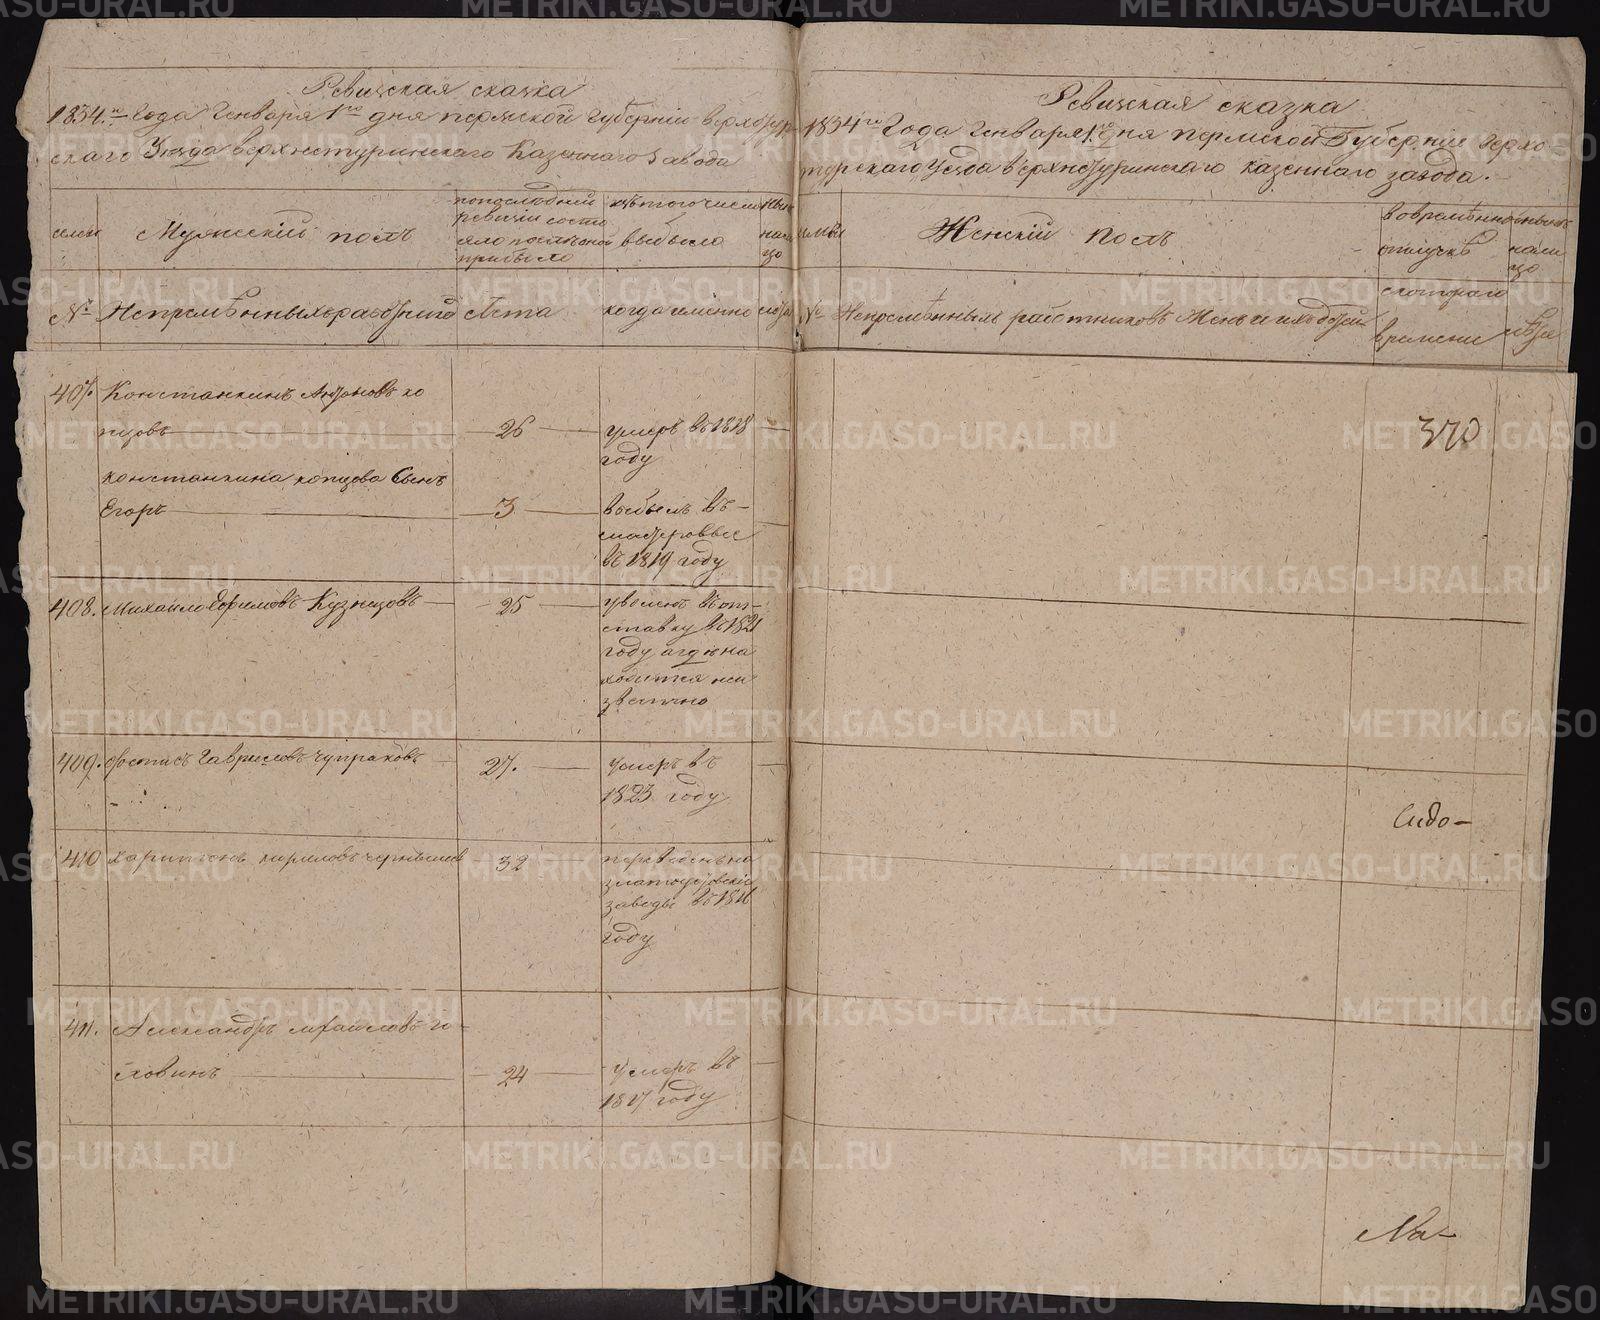 Ревизская сказка
1834.го Года Генваря 1го дня пермской губернии верхотур
скаго Уезда верхнетуринскаго Казеннаго завода
семьи
Мужеский полъ
по последней
ревизии состо
яло и после оной
прибыло
изъ того числа
выбыло
ныне
нали
цо
№
Непременныхъ работнико
Лета
когда именно
лета
407.
Константинъ Антоновъ ко
пцовъ
26
умеръ въ 1818
году
константина копцова Сынъ
Егоръ
3
выбылъ въ
мастеровые
въ 1819 году
408.
Михайло Ефимовъ Кузнецовъ
25
уволенъ въ от
ставку въ 1821
году а где на
ходится неи
звестно
409.
Гавриловъ Чупраковъ
27.
умеръ въ
1823 году
410
харитонъ кириловъ чернышев
32
переведенъ на
златоустовские
заводы въ 1816
году
411.
Александръ го-
ловинъ
24
умеръ въ
1817 году
Ревизская сказка
1834го Года Генваря 1го дня пермской Губернии верхо-
турскаго Уезда верхнетуринскаго казеннаго завода.
семьи
Женский полъ
во временно
отлучке
ныне
нали
цо
№
Непременныхъ работниковъ Жены и ихъ дети
с котораго
времени
лета
370
Сидо-
На-
METRIKI.GASO-URAL.RU